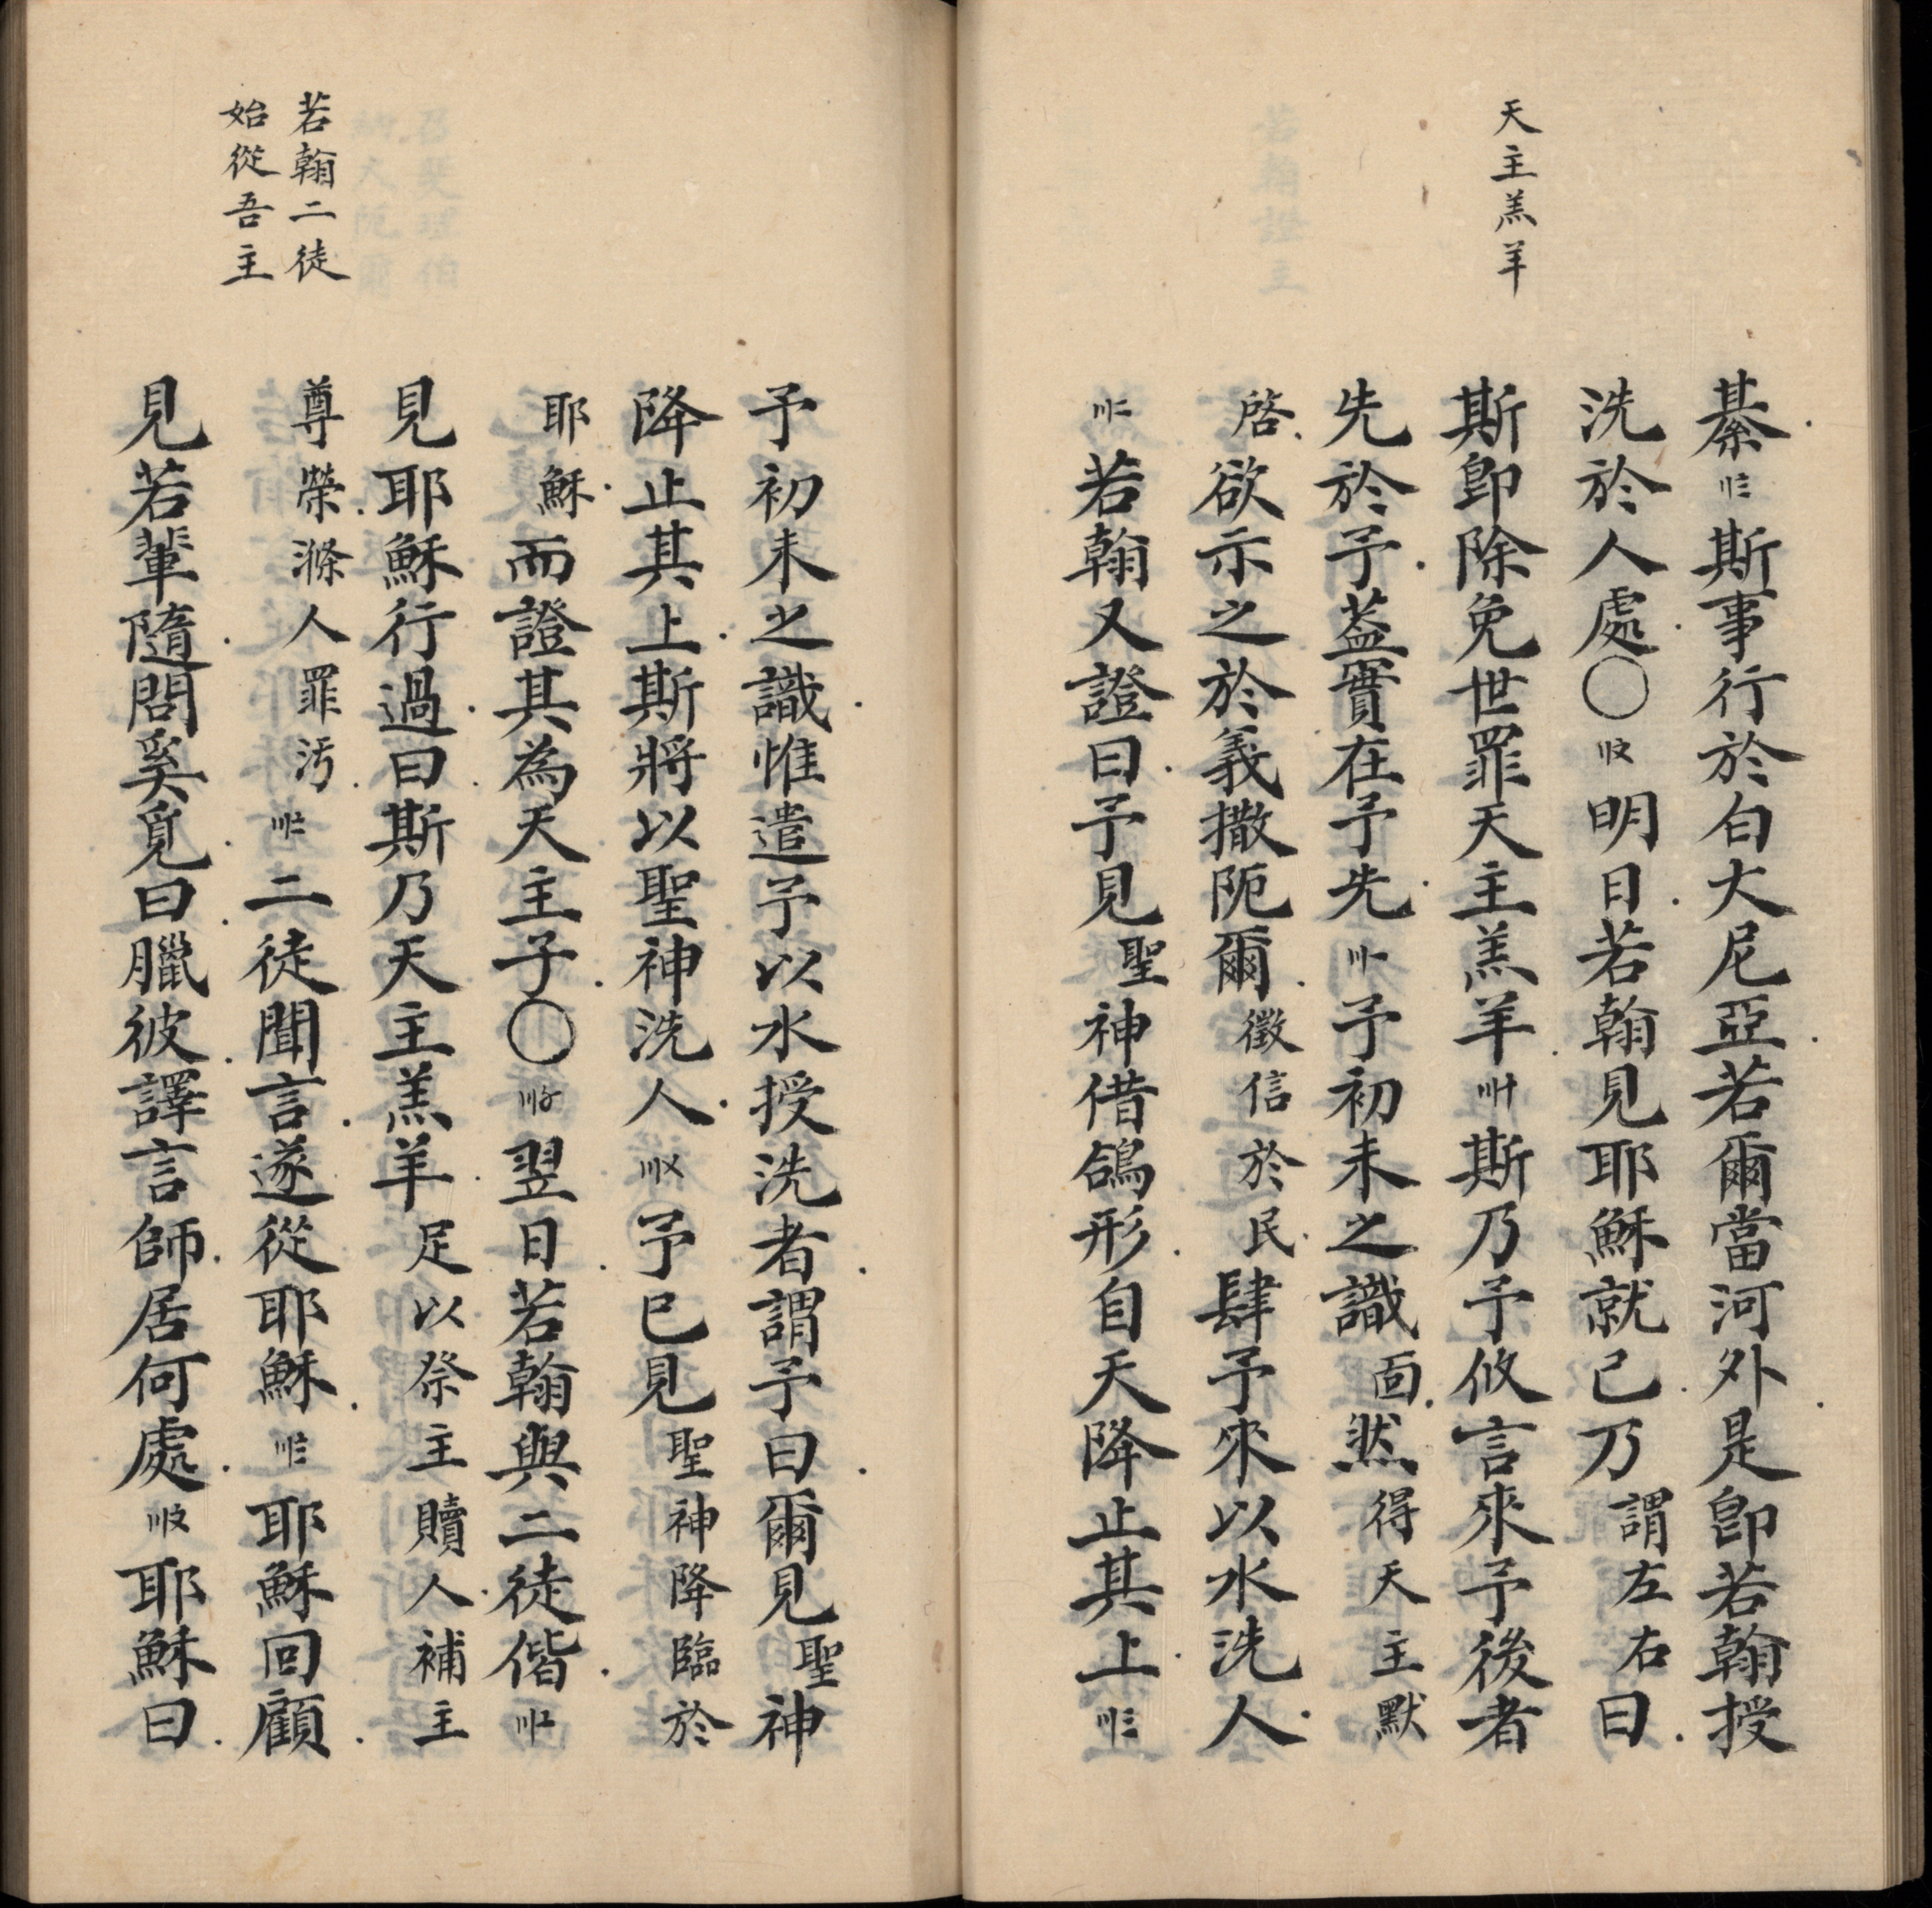 天主羔羊
綦〢〨斯事行於白大尼亞若爾當河外是卽若翰授
洗於人處〇〢〩明日若翰見耶穌就己乃謂左右曰
斯卽除免世罪天主羔羊〣十斯乃予攸言來予後者
先於予葢實在予先〣〡予初未之識面然得天主默
啓欲示之於義撒阨爾徵信於民肆予來以水洗人
〣〢若翰又證曰予見聖神借鴿形自天降止其上〣〣
予初未之識惟遣予以水授洗者謂予曰爾見聖神
降止其上斯將以聖神洗人〣〤予已見聖神降臨於
耶穌而證其為天主子〇〣〥翌日若翰與二徒偕〣〦
見耶穌行過曰斯乃天主羔羊足以祭主贖人補主
若翰二徒
始從吾主
尊榮滌人罪污〣〧二徒聞言遂從耶穌〣〨耶穌回顧
見若輩隨問奚覓曰臘彼譯言師居何處〣〩耶穌曰